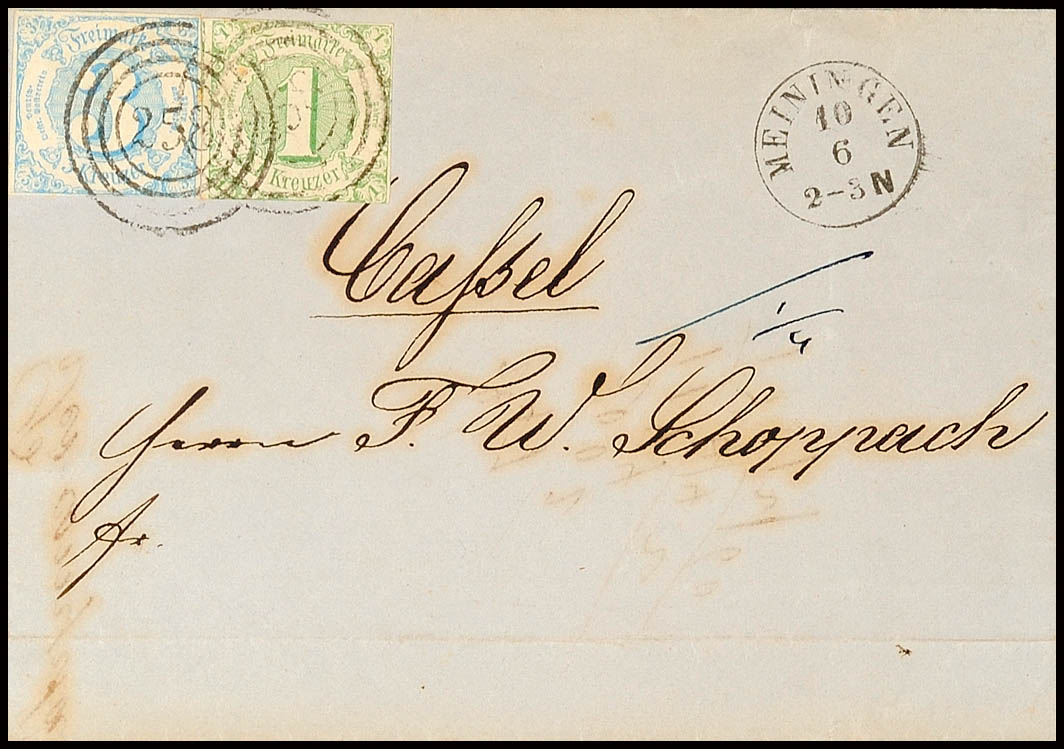 Freimarke
3
Kreuzer
258
1 1
Freimarke
1
Kreuzer
1 1
MEININGEN
10
6
2-3 N
Caſsel
1/4
Herrn F. W. Schoppach
fr.